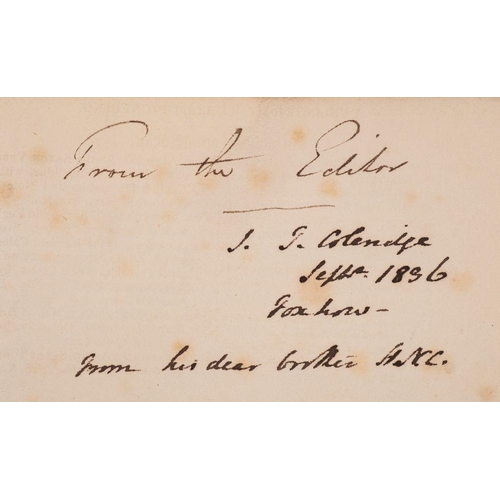 From the Editor
J. T. Coleridge
Septr. 1836
Foxhow –
From his dear brother H.N.C.